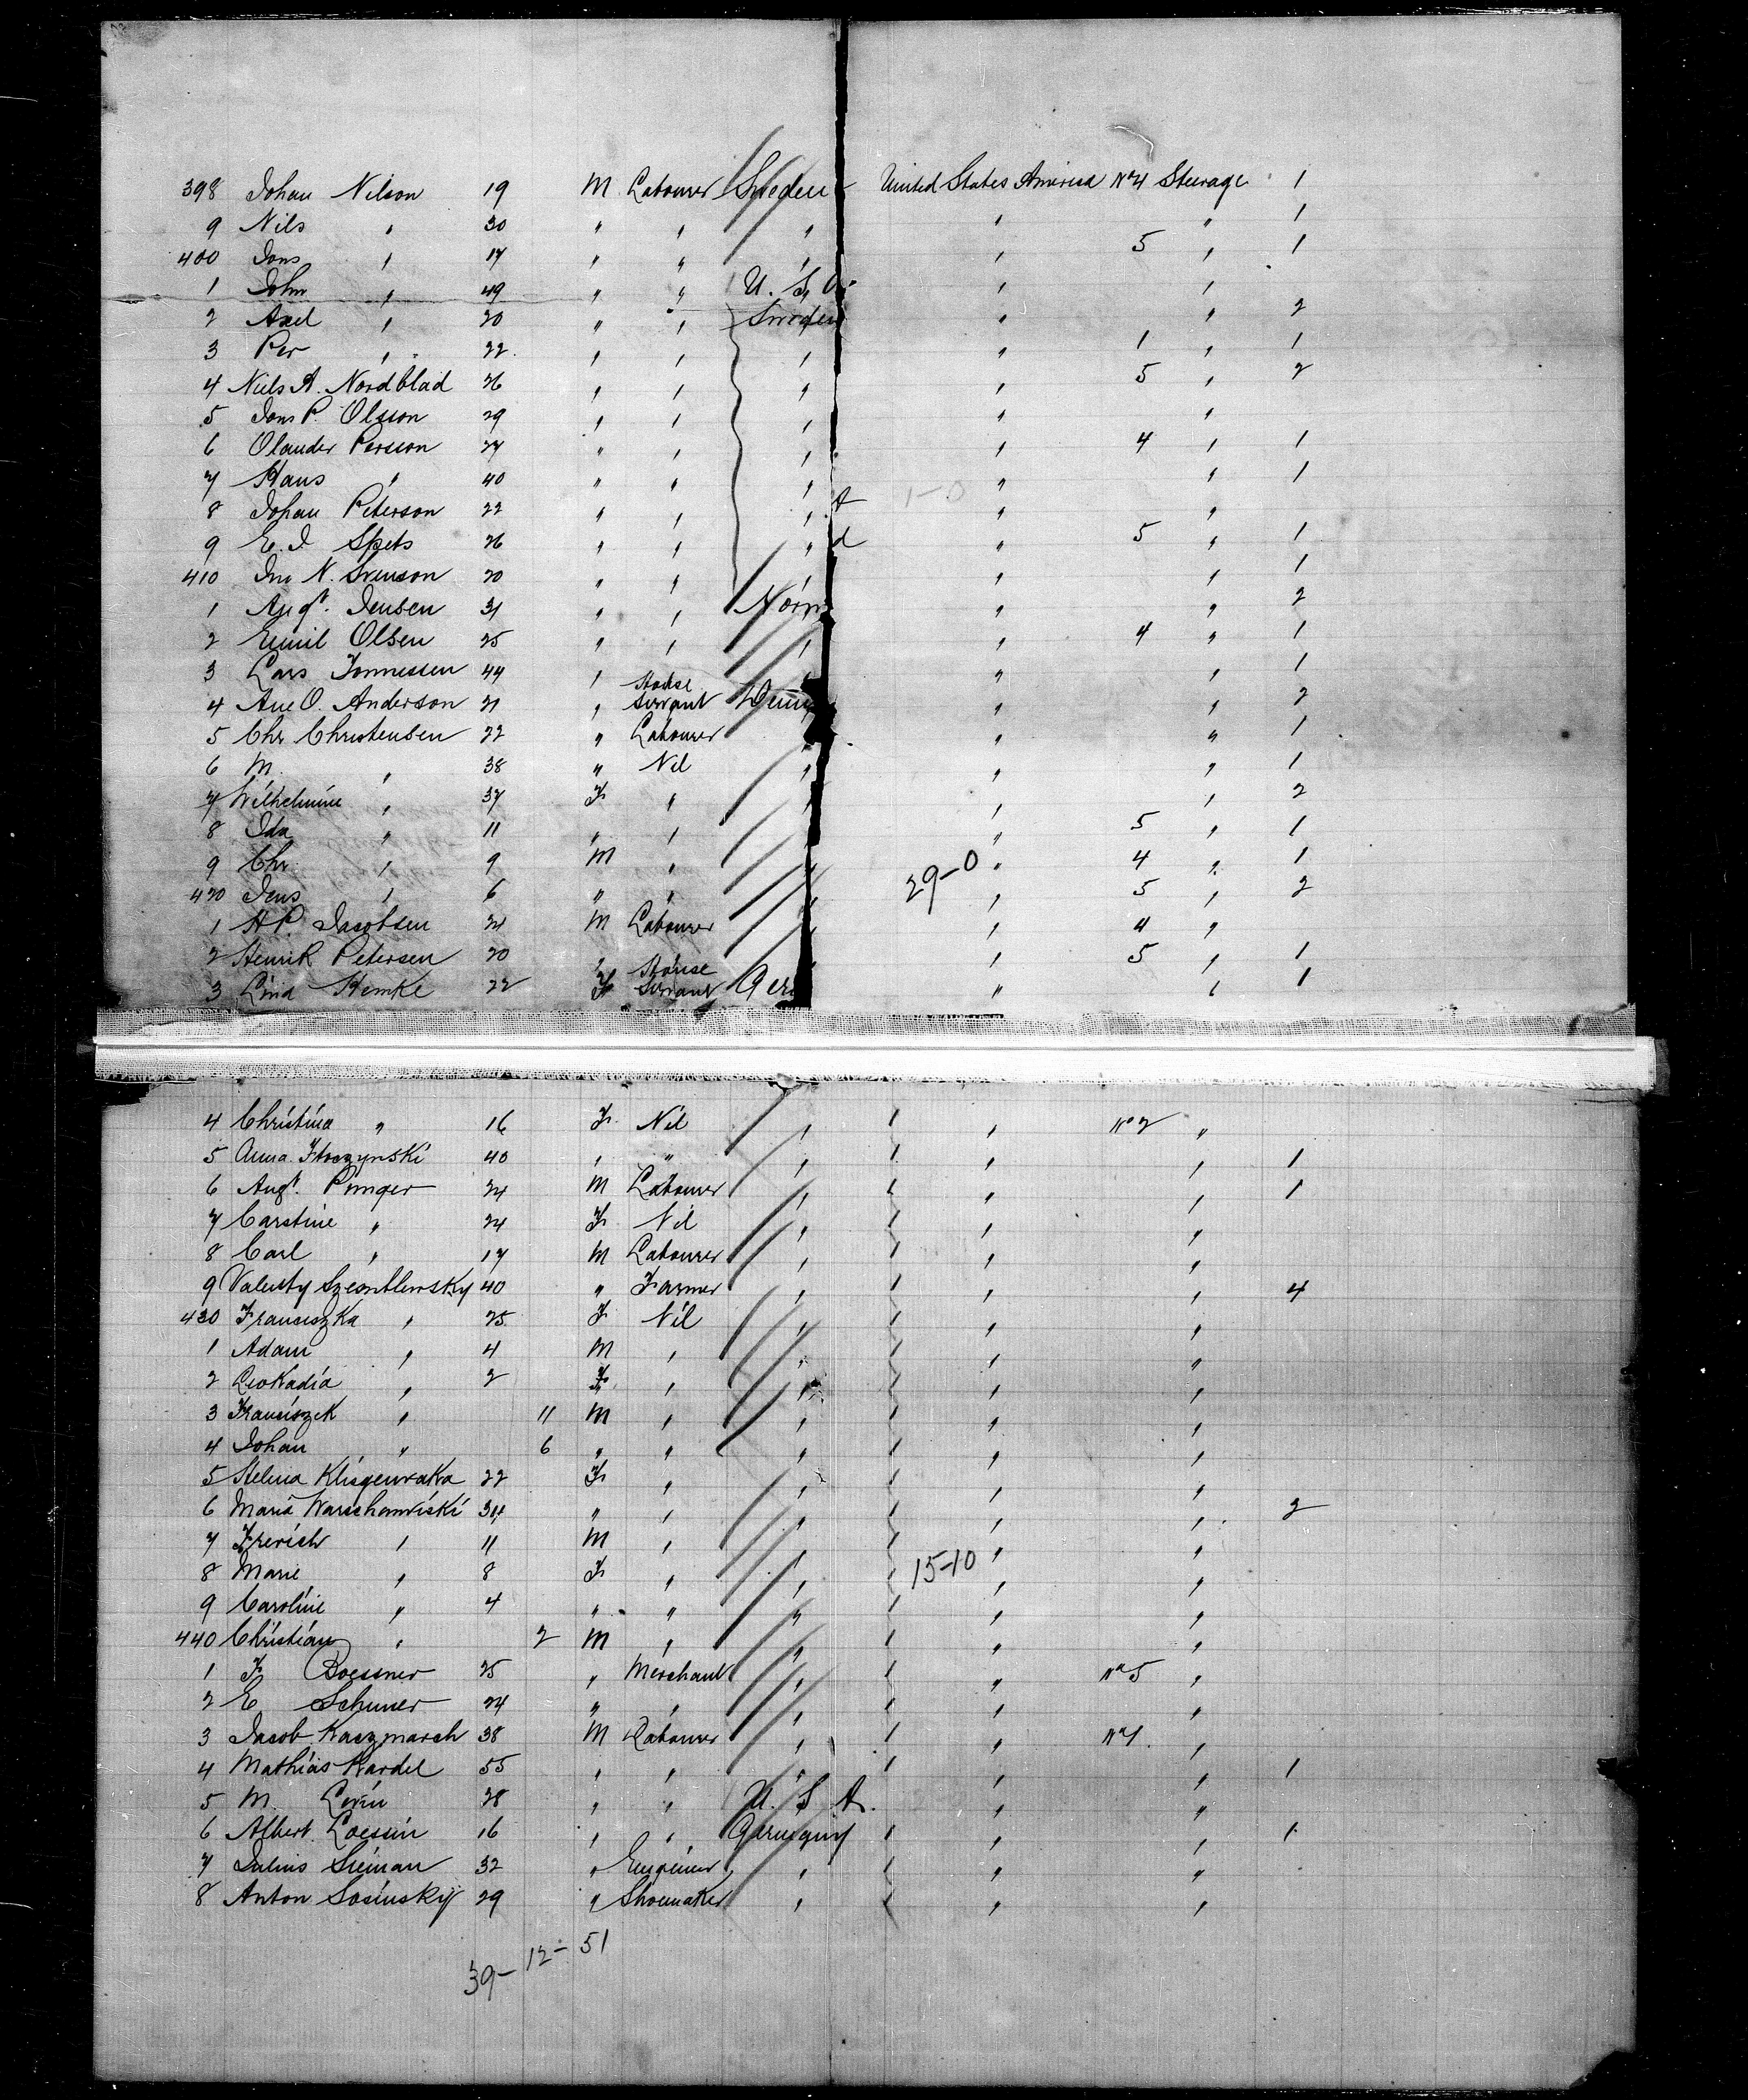 398 Johan Nilson 19 M Labourer Sweden United States America No 4 Steerage 1
9 Nils " 30 " " " " " 1
400 Jons " 17 " " " " 5 " 1
1 John " 49 " " U. S. " "
2 Axel " 20 " " Sweden " " 2
3 Per " 22 " " " " 1 " 1
4 Niels A. Nordblad 26 " " " " 5 " 2
5 Jons P. Olsson 29 " " " " "
6 Olander Persson 27 " " " " 4 " 1
7 Hans " 40 " " " " " 1
8 Johan Peterson 22 " " " A 1-0 " "
9 E. J Spets 26 " " " d " 5 " 1
410 Jno N. Svenson 20 " " " " " 1
1 Augt. Jensen 31 " " Norw " " 2
2 Emil Olsen 25 " " " " 4 " 1
3 Lars Tonnessen 44 " " " " 1
4 Ane O. Anderson 21 " House Servant Denm " " 2
5 Chr Christensen 22 " Labourer " " 1
6 M. " 38 " Nil " " " 1
7 Wilhelmine " 37 F " " " " 2
8 Ida " 11 " " " 5 " 1
9 Chr " 9 M " " 29-0 " 4 " 1
420 Jens " 6 " " " " 5 " 2
1 H P. Jacobsen 21 M Labourer " 4 "
2 Henrik Petersen 20 " " 5 " 1
3 Lina Hemke 22 F House Servant Ger " " 1
4 Christina " 16 F Nil " 1 " No 2 "
5 Anna 40 " " " 1 " " 1
6 Augt. Pringer 24 M Labourer " 1 " " 1
7 Carstine " 24 F Nil " 1 " "
8 Carl " 17 M Labourer " 1 " "
9 Valenty 40 " Farmer " 1 " " 4
430 Franciszka " 25 F Nil " 1 " "
1 Adam " 4 M " " 1 " "
2 Leokadia " 2 F " " 1 " "
3 Franciszek " 11 M " " 1 " "
4 Johan " 6 " " " 1 " "
5 Helena 22 F " " 1 " "
6 Maria Warschawiski 34 " " " 1 " " 2
7 Frerich " 11 M " " 1 " "
8 Marie " 8 F " " 1 15-10 " "
9 Caroline " 4 " " " 1 " "
440 Christian " 2 M " " 1 " "
1 F Boessner 25 " Merchant " 1 " No 5 "
2 E Schuner 24 " " " 1 " "
3 Jacob Kaczmarch 38 M Labourer " 1 " No 1. "
4 Mathias Kardel 55 " " " 1 " " 1
5 M. Levin 28 " " U. S A. " "
6 Albert Loessin 16 " " Germany 1 " " 1
7 Julius Sieman 32 " Engineer " 1 " "
8 Anton Sosinsky 29 " Shoemaker " 1 " "
39- 12- 51